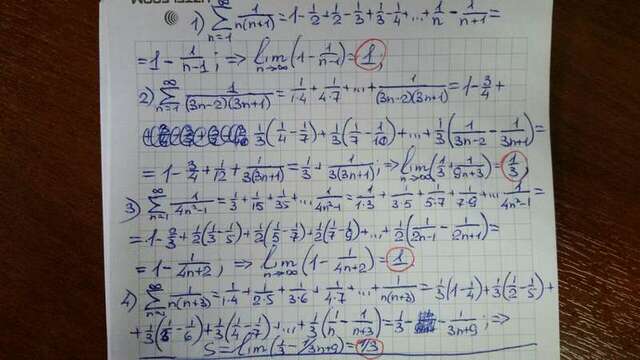 1) ∑_{n=1}^{∞} 1/(n(n+1)) = 1 - 1/2 + 1/2 - 1/3 + 1/3 - 1/4 + ... + 1/n - 1/(n+1) =
= 1 - 1/(n-1); => lim_{n→∞} (1 - 1/(n-1)) = 1;
2) ∑_{n=1}^{∞} 1/((3n-2)(3n+1)) = 1/(1·4) + 1/(4·7) + ... + 1/((3n-2)(3n+1)) = 1 - 3/4 +
1/3(1/4 - 1/7) + 1/3(1/7 - 1/10) + ... + 1/3(1/(3n-2) - 1/(3n+1)) =
= 1 - 3/4 + 1/12 + 1/(3(3n+1)) = 1/3 + 1/(3(3n+1)); => lim_{n→∞} (1/3 + 1/(9n+3)) = 1/3;
3) ∑_{n=1}^{∞} 1/(4n²-1) = 1/3 + 1/15 + 1/35 + ... 1/(4n²-1) = 1/(1·3) + 1/(3·5) + 1/(5·7) + 1/(7·9) + ... 1/(4n²-1) =
= 1 - 2/3 + 1/2(1/3 - 1/5) + 1/2(1/5 - 1/7) + 1/2(1/7 - 1/9) + ... + 1/2(1/(2n-1) - 1/(2n+1)) =
= 1 - 1/(4n+2), => lim_{n→∞} (1 - 1/(4n+2)) = 1.
4) ∑_{n=1}^{∞} 1/(n(n+3)) = 1/(1·4) + 1/(2·5) + 1/(3·6) + 1/(4·7) + ... + 1/(n(n+3)) = 1/3(1 - 1/4) + 1/3(1/2 - 1/5) +
+ 1/3(1/3 - 1/6) + 1/3(1/4 - 1/7) + ... + 1/3(1/n - 1/(n+3)) = 1/3 - 1/(3n+9); =>
S = lim(1/3 - 1/3n+9) = 1/3